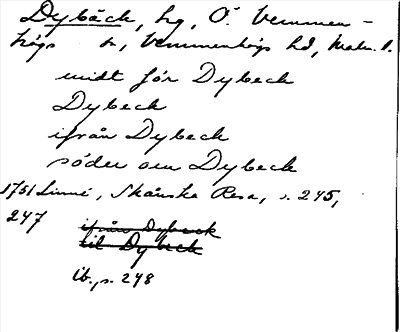 Dybäck, hg, Ö. Vemmen-
högs sn, Vemmenhögs hd, Malm. l.
midt för Dybeck
Dybeck
ifrån Dybeck
söder om Dybeck
1751 Linné, Skånska Resa, s. 245,
247
ifrån Dybeck
til Dybeck
ib. s. 248